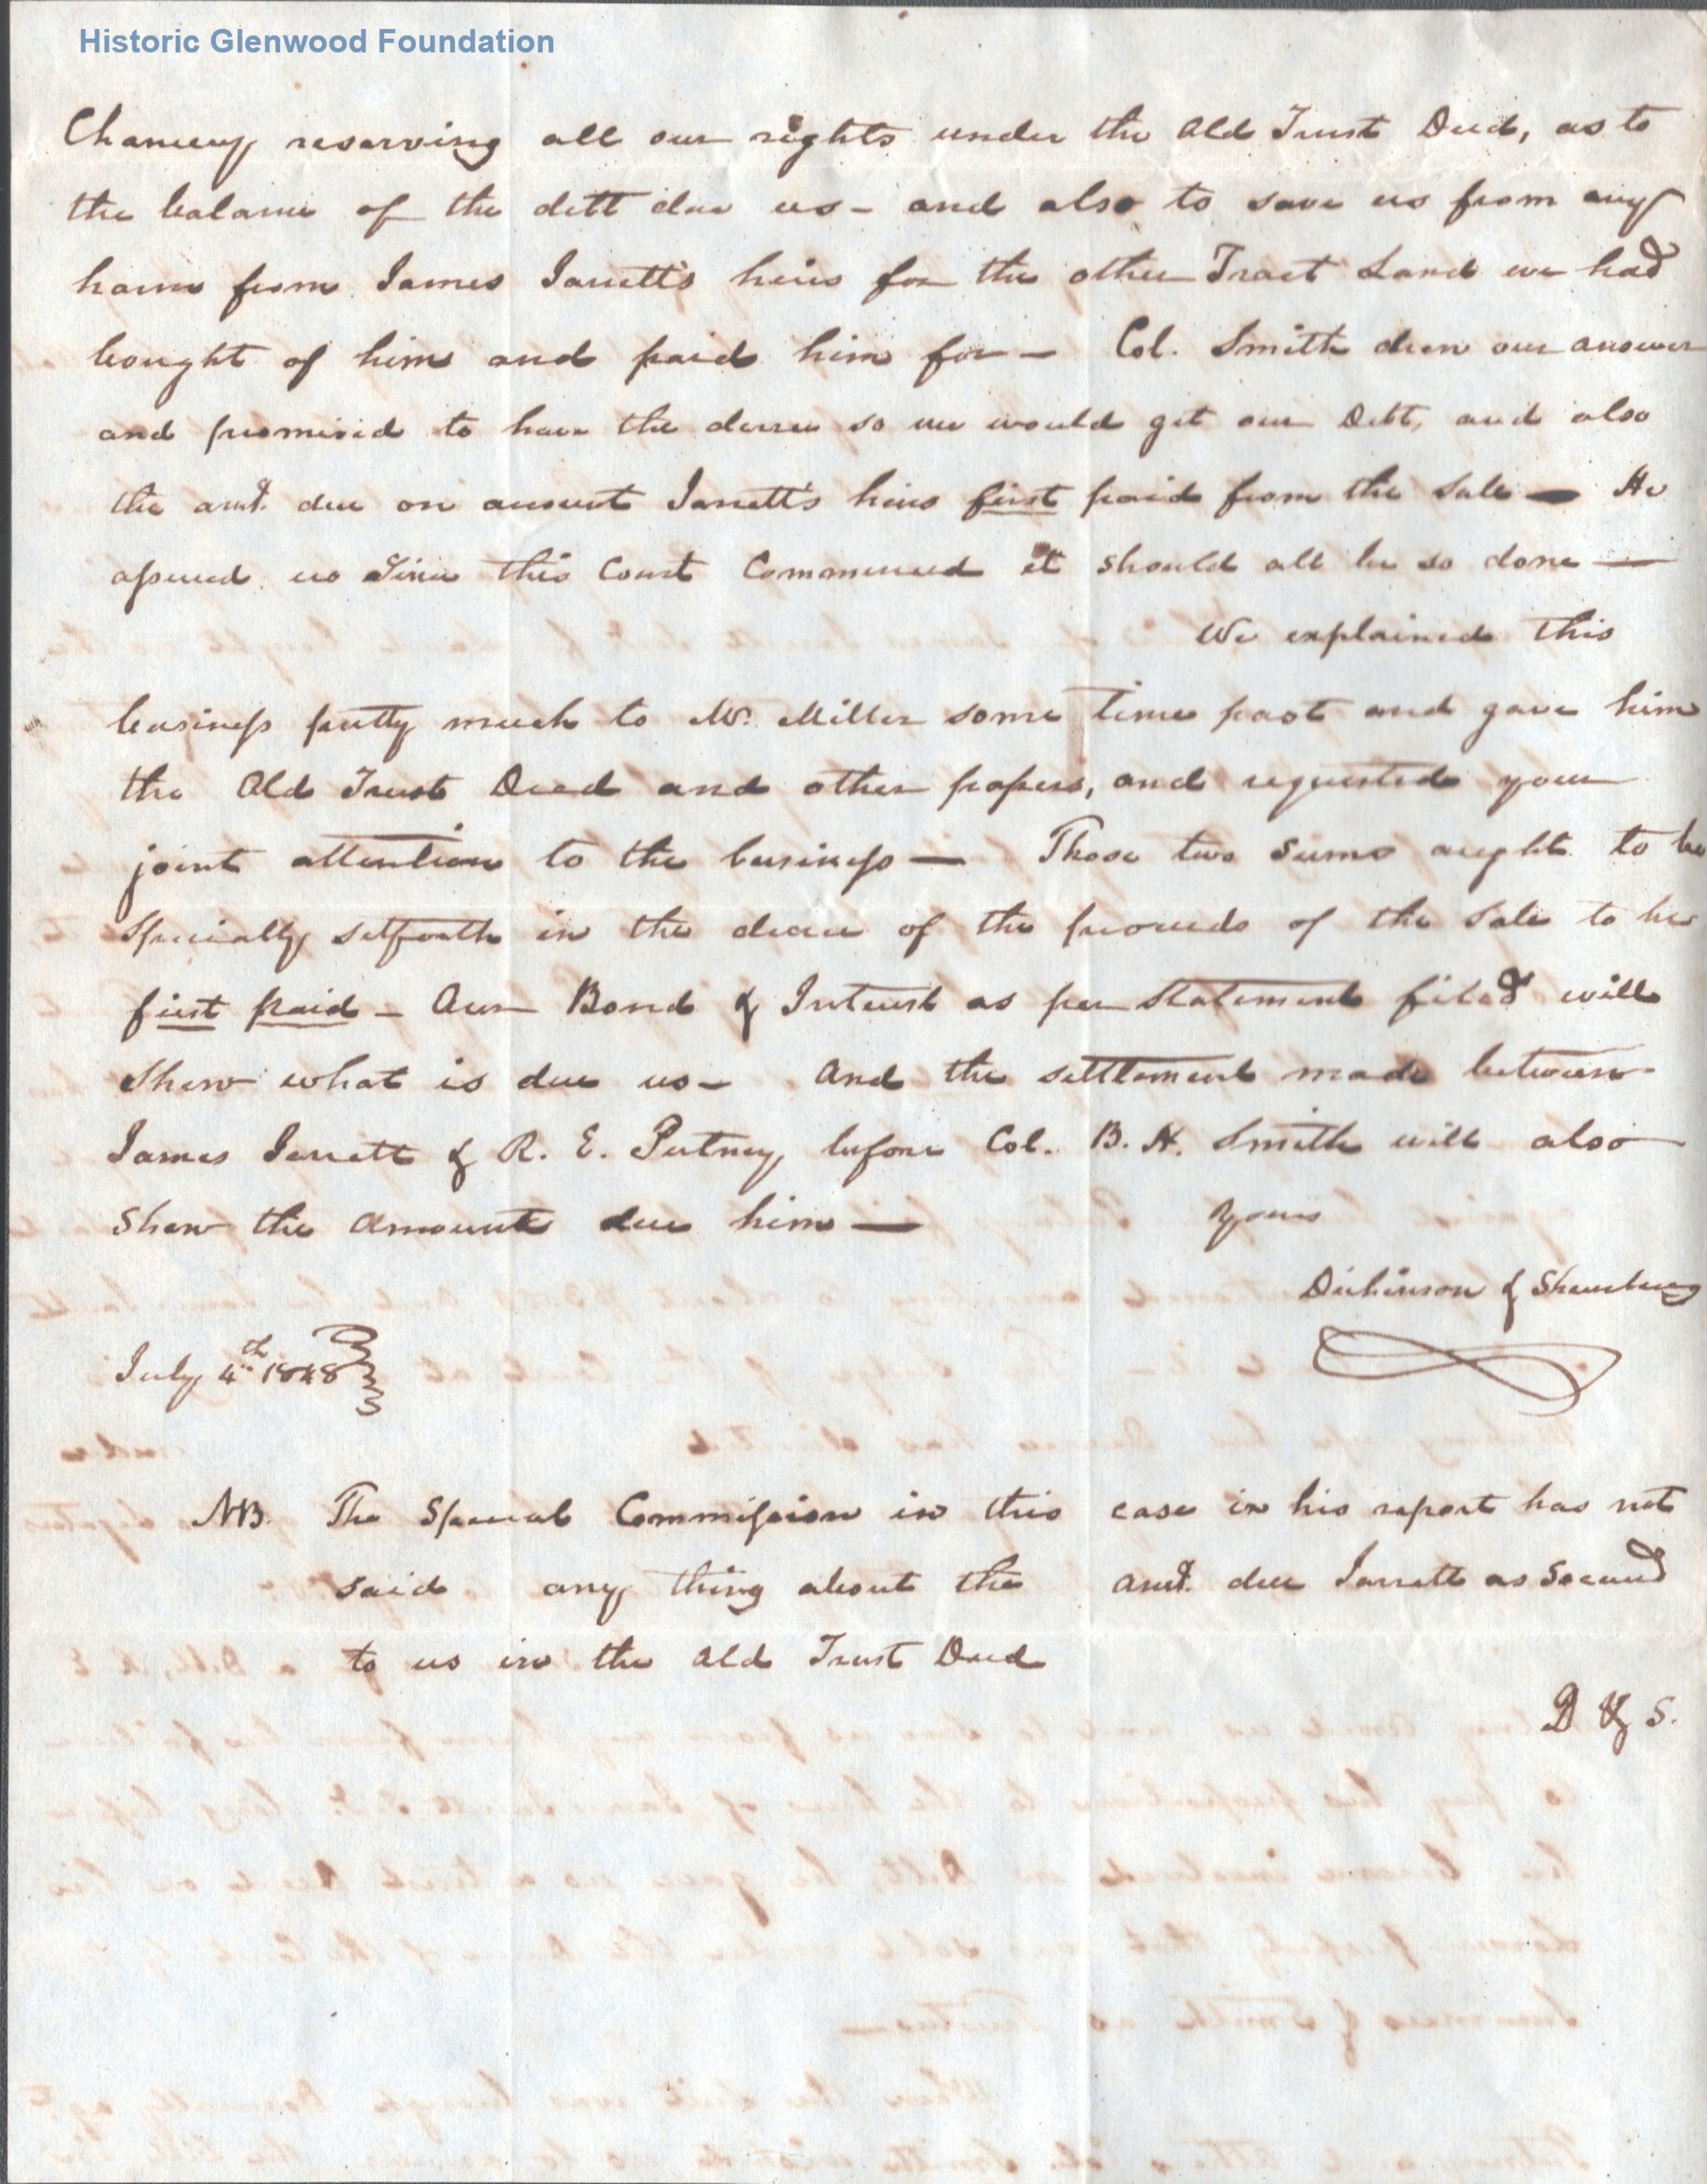 Historic Glenwood Foundation
Chancery reserving all our rights under the Old Trust Deed, as to
the balance of the debt due us – and also to save us from any
harm from James Jarrett's heirs for the other Tract Land we had
bought of him and paid him for – Col. Smith drew our answer
and promised to have the decree so we would get our Debt, and also
the amt. due on account Jarrett's heirs first paid from the Sale – He
assured us since this Court Commenced it should all be so done —
We explained this
business pretty much to Mr. Miller some time past and gave him
the Old Trust Deed and other papers, and requested your
joint attention to the business — Those two sums aught to be
Specially setforth in the decree of the proceeds of the Sale to be
first paid – Our Bond & Interest as per Statement filed will
Shew what is due us – And the settlement made between
James Jarrett & R. E. Putney before Col. B. H. Smith will also
Shew the Amount due him —
Yours
Dickinson & Shrewsbury
July 4th 1848
NB. The Special Commission in this case in his report has not
said any thing about the amt. due Jarrett as Secured
to us in the Old Trust Deed
D & S.